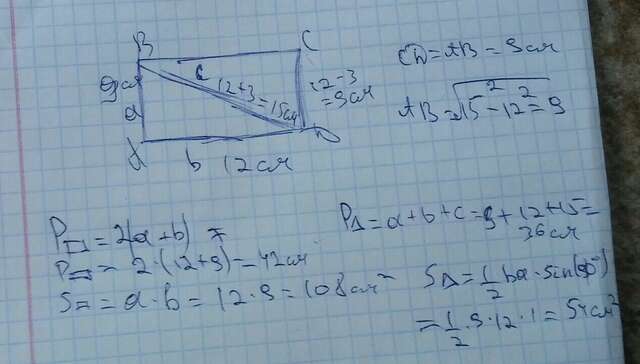 B C
c 12+3 =15см
9см
a
12-3 =9см
A D
b 12см
CD=AB=9см
AB=√15²-12²=9
P▭=2(a+b)=
P▭=2·(12+9)=42см
S▭=a·b=12·9=108см²
P∆=a+b+c=9+12+15=
36см
S∆=1/2 ba·sin(90°)
=1/2·9·12·1=54см²